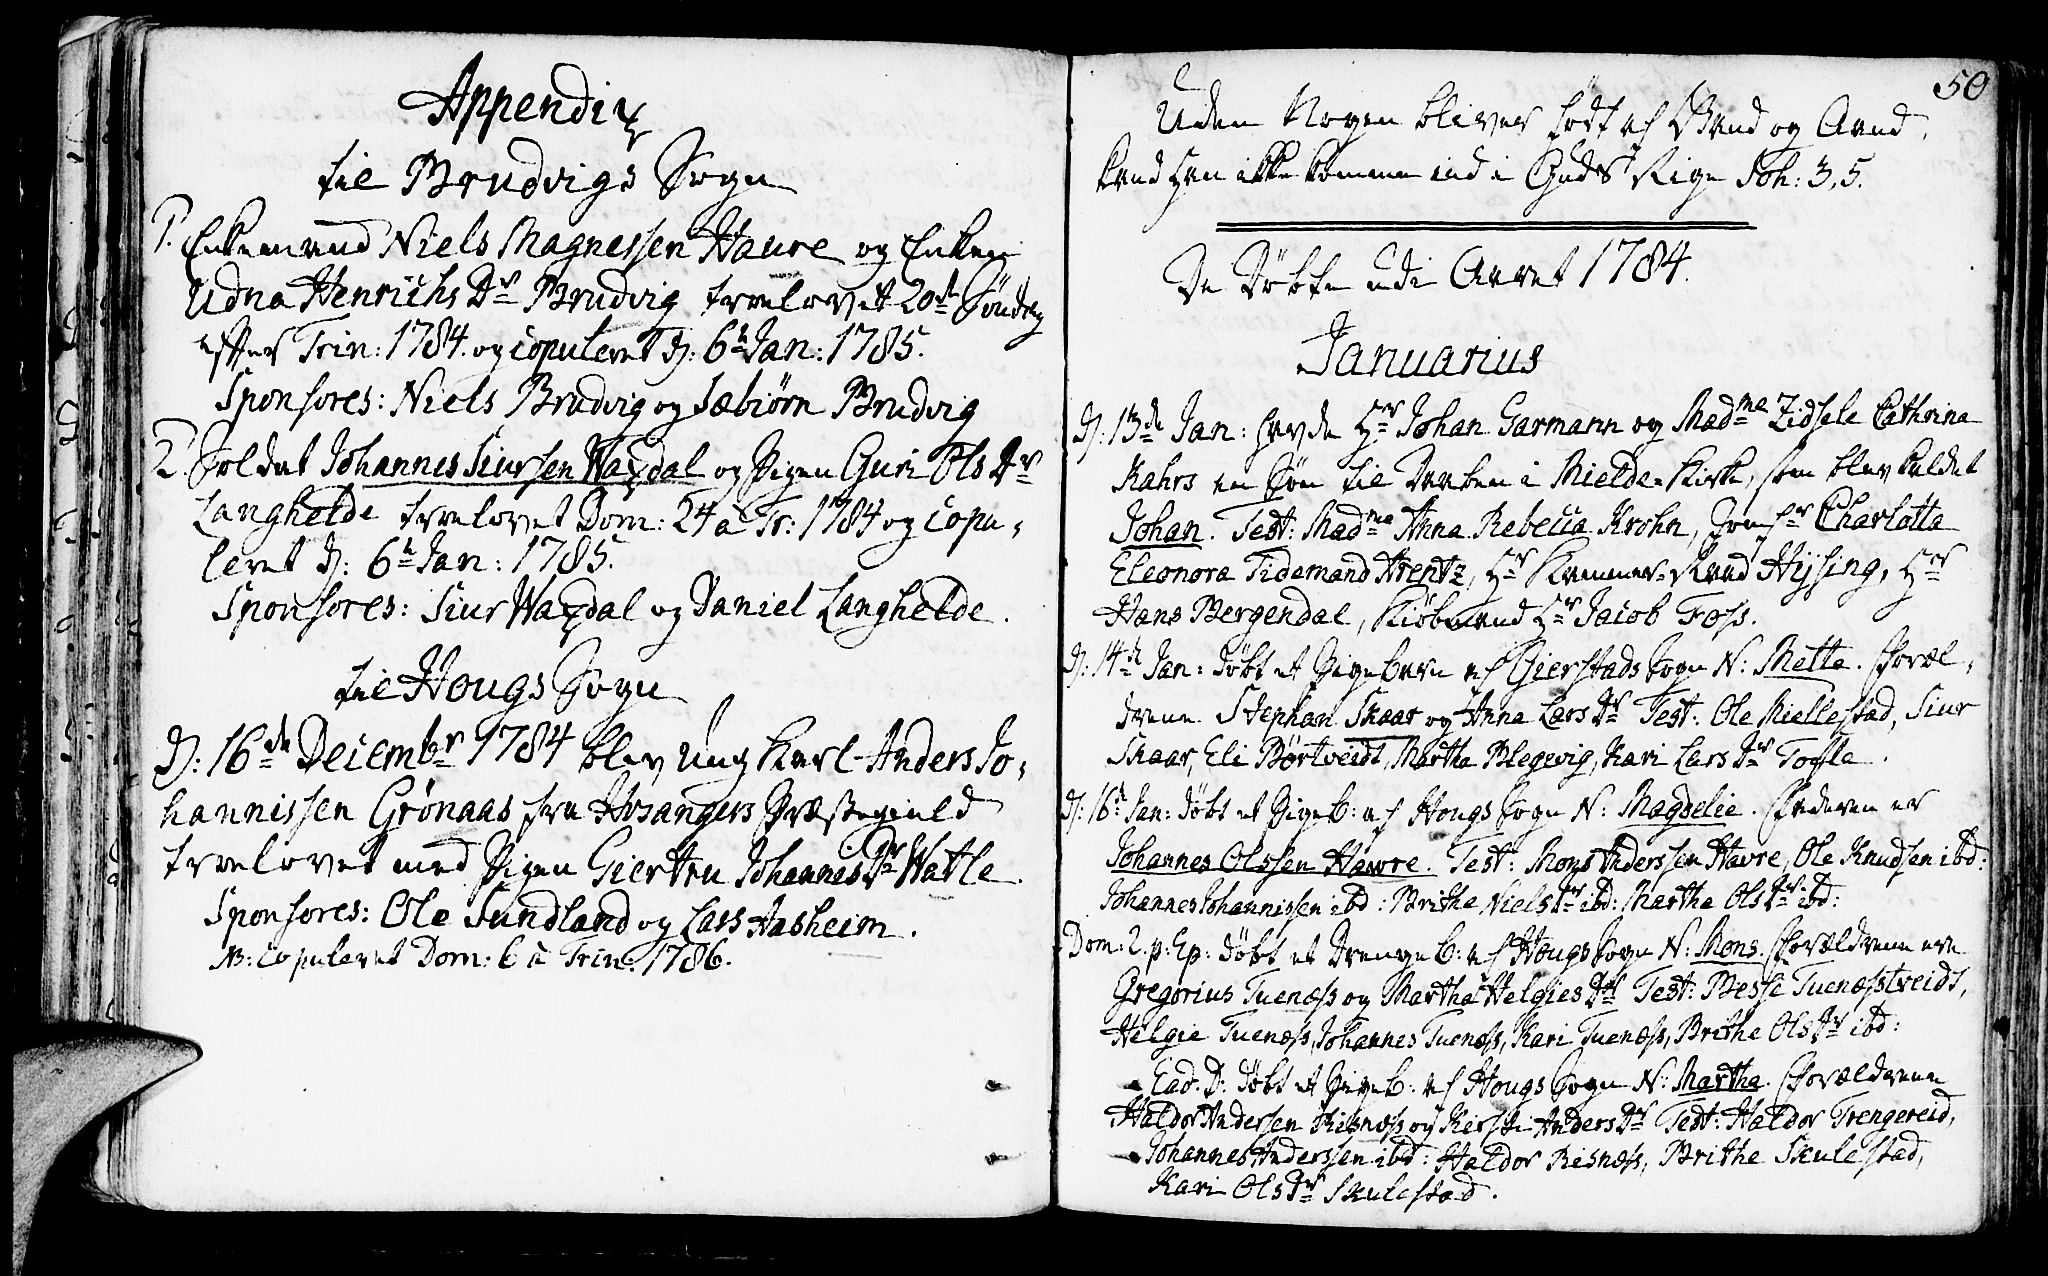 Appendix
til Brudvigs Sogn
1. Enkemand Niels Magnessen Haure og Enken
Udna Henrichs Dr Brudvig trolovet 20de Søndag
efter Trin: 1784. og copuleret d: 6te Jan: 1785.
Sponsores: Niels Brudvig og Sæbiørn Brudvig
2. Soldat Johannes Siursen Waxdal og Pigen Guri Ols Dr
Langhelde trolovet Dom: 24 a Tr: 1784 og copu-
leret d: 6te Jan: 1785.
Sponsores: Siur Waxdal og Daniel Langhelde.
til Hougs Sogn
D: 16de Decembr 1784 blev Ung Karl Anders Jo-
hannissen Grønaas fra Hosangers Præstegield
trolovet med Pigen Giertru Johannes Dr Watle.
Sponsores: Ole Sundland og Lars Aasheim.
NB: copuleret Dom: 6 a Trin: 1786.
50
Uden Nogen bliver født af Vand og Aand,
kand han ikke komme ind i Guds Rige Joh: 3, 5.
De Døbte udi Aaret 1784.
Januarius
D: 13de Jan: havde Hr Johan Garmann og Madme Zidsele Cathrina
Rahrs en Søn til Daaben i Mielde-Kirke, som blev kaldet
Johan. Test: Madme Anna Rebecca Krohn, Jomfr Charlotta
Eleonora Tidemand Arentz, Hr Kammer-Raad Hysing, Hr
Hans Bergendal, Kiøbmand Hr Jacob Foss.
D: 14de Jan: døbt et Pigebarn af Gierstads Sogn N: Mette. Foræl-
drene Stephan Skaar og Anna Lars Dr Test: Ole Miellestad, Siur
Skaar, Eli Børtveidt, Martha Blegevig, Kari Lars Dr Tofte.
D: 16de Jan: døbt et Pigeb: af Hougs Sogn N: Magdelie. Faderen er
Johannes Olssen Hawre. Test: Mons Anderssen Havre, Ole Knudsen ibd:
Johannes Johannissen ibd: Brithe Niels Dr ibd: Martha Ols Dr ibd:
Dom: 2. p: Ep: døbt et Drengeb: af Hougs Sogn N: Mons. Forældrene ere
Gregorius Tuenæss og Martha Helgies Dr Test: Besse Tuenæsstveidt,
Helgie Tuenæss, Johannes Tuenæss, Kari Tuenæss, Brithe Ols Dr ibd:
Ead. D: døbt et Pigeb: af Hougs Sogn N: Martha. Forældrene
Haldor Andersen Risnæss og Kirsti Anders Dr Test: Haldor Trengereid,
Johannes Anderssen ibd: Haldor Risnæss, Brithe Skulestad,
Kari Ols Dr Skulestad.